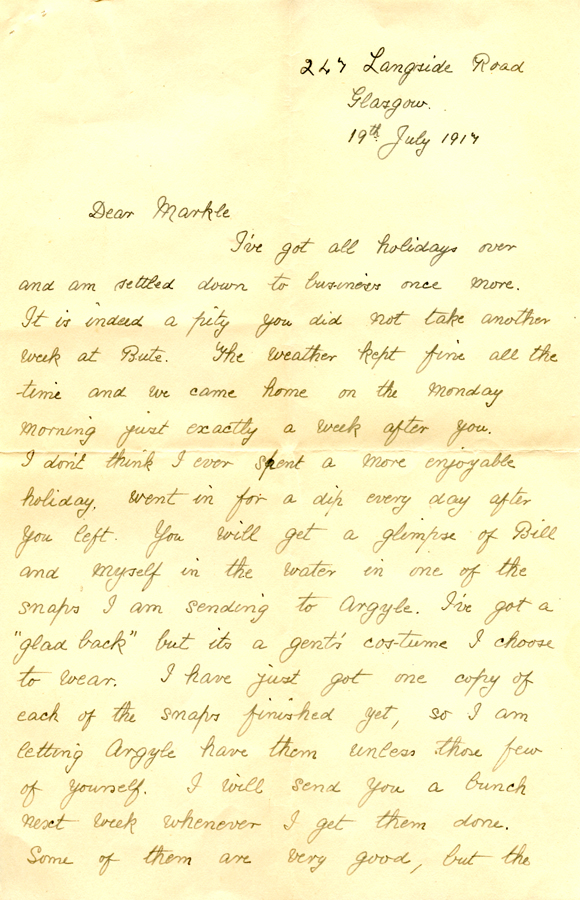 247 Langside Road
Glasgow.
19th July 1917
Dear Markle
I've got all holidays over
and am settled down to business once more.
It is indeed a pity you did not take another
week at Bute. The weather kept fine all the
time and we came home on the Monday
morning just exactly a week after you.
I don't think I ever spent a more enjoyable
holiday. Went in for a dip every day after
you left. You will get a glimpse of Bill
and myself in the water in one of the
snaps I am sending to Argyle. I've got a
"glad back" but its a gent's costume I choose
to wear. I have just got one copy of
each of the snaps finished yet, so I am
letting Argyle have them unless those few
of yourself. I will send you a bunch
next week whenever I get them done.
Some of them are very good, but the